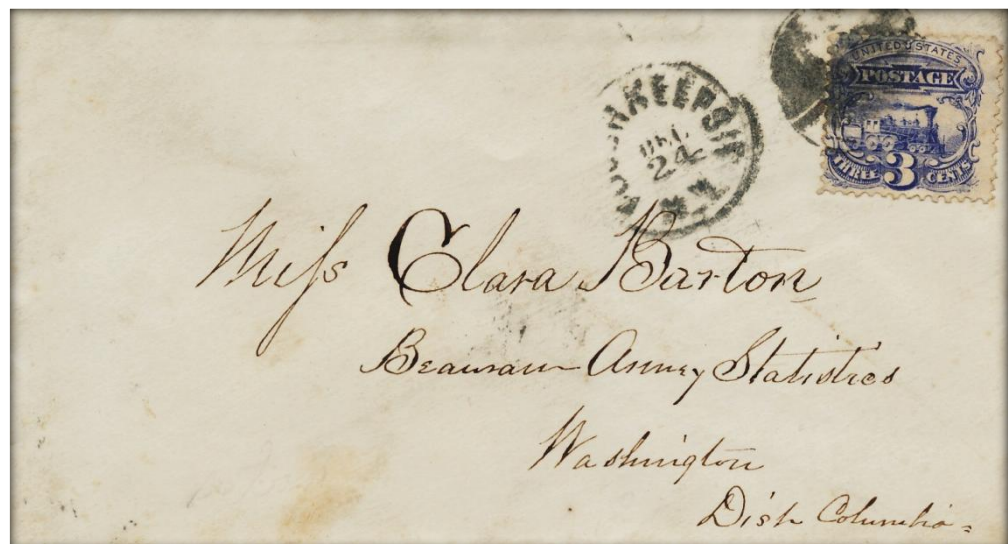 UNITED STATES
POSTAGE
THREE 3 CENTS
POUGHKEEPSIE
DEC.
24
N.Y.
Miſs Clara Barton
Beauraw Army Statistics
Washington
Dist Columbia